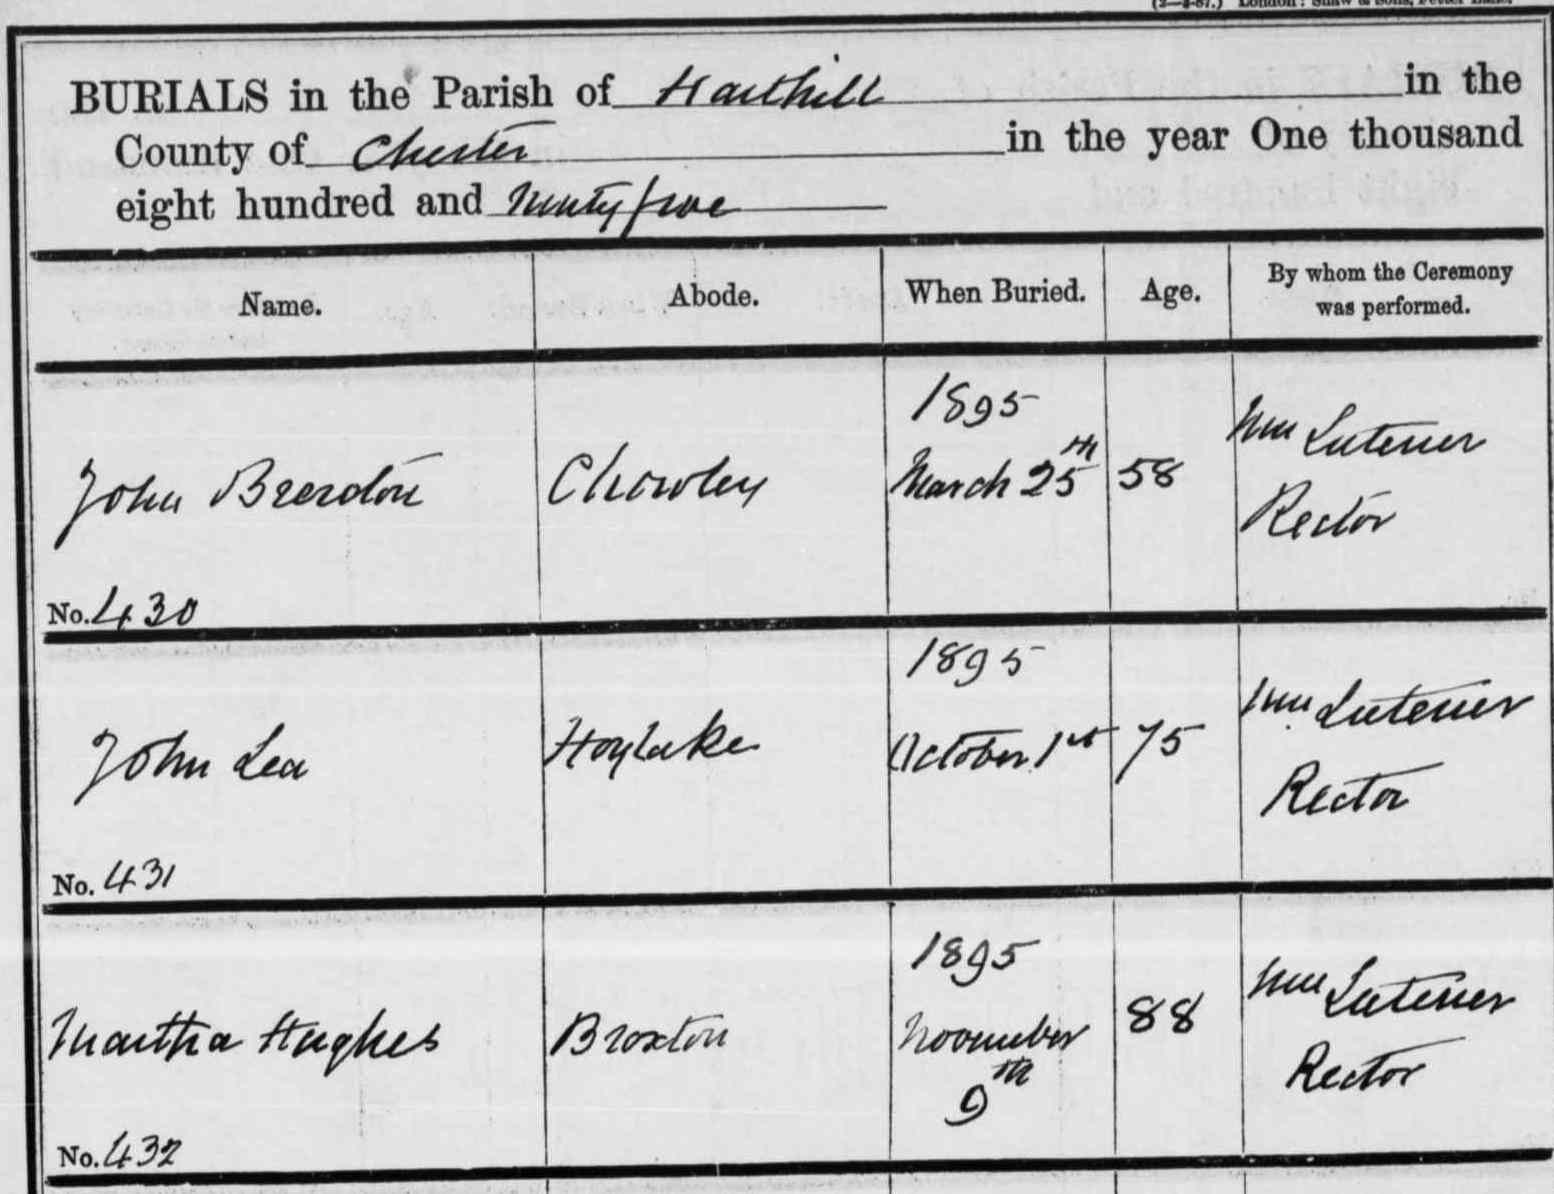 (2—4-87.) London: Shaw & Sons, Fetter Lane.
BURIALS in the Parish of Harthill in the
County of Chester in the year One thousand
eight hundred and ninety five
Name. Abode. When Buried. Age. By whom the Ceremony
was performed.
1895
John Brereton Chowley March 25th 58 Wm Lutener
Rector
No. 430
1895
John Lea Hoylake October 1st 75 Wm Lutener
Rector
No. 431
1895
Martha Hughes Broxton November 88 Wm Lutener
9th Rector
No. 432